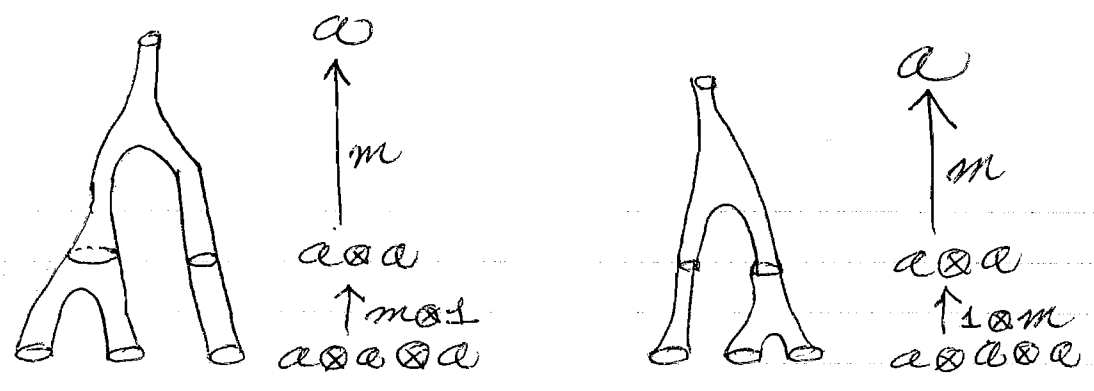 a
m
a⊗a
m⊗1
a⊗a⊗a
a
m
a⊗a
1⊗m
a⊗a⊗a